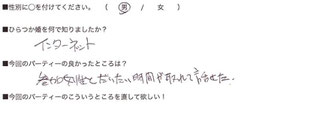 ■性別に○を付けてください。 （ 男 / 女 ）
■ひらつか婚を何で知りましたか？
インターネット
■今回のパーティーの良かったところは？
各女性とだいたい時間が取れて話せた。
■今回のパーティーのこういうところを直して欲しい！